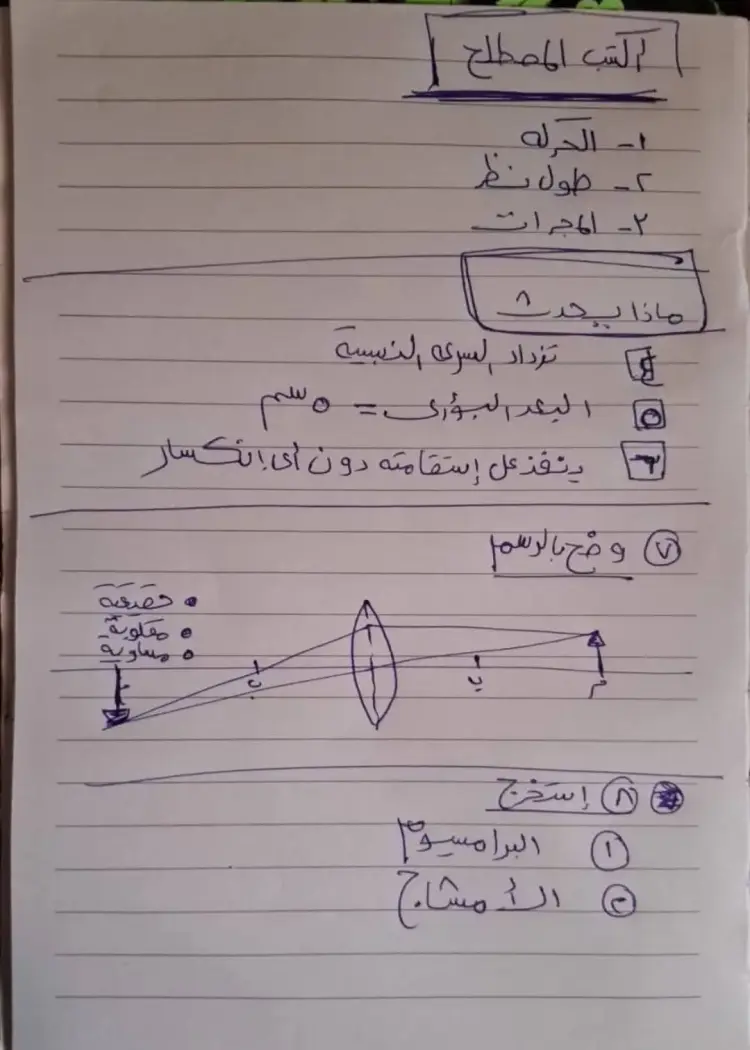 اكتب المصطلح
١- الحركه
٢- طول نظر
٣- المجرات
ماذا يحدث ٨
٤ تزداد السرعه النسبية
٥ البعد البؤرى = ٥ سم
٦ ينفذ على إستقامته دون أى إنكسار
٧ وضح بالرسم
• حقيقية
• مقلوبة
• مساوية
ب
ب
م
٨ إستخرج
١ البرامسيوم
٢ الأمشاج